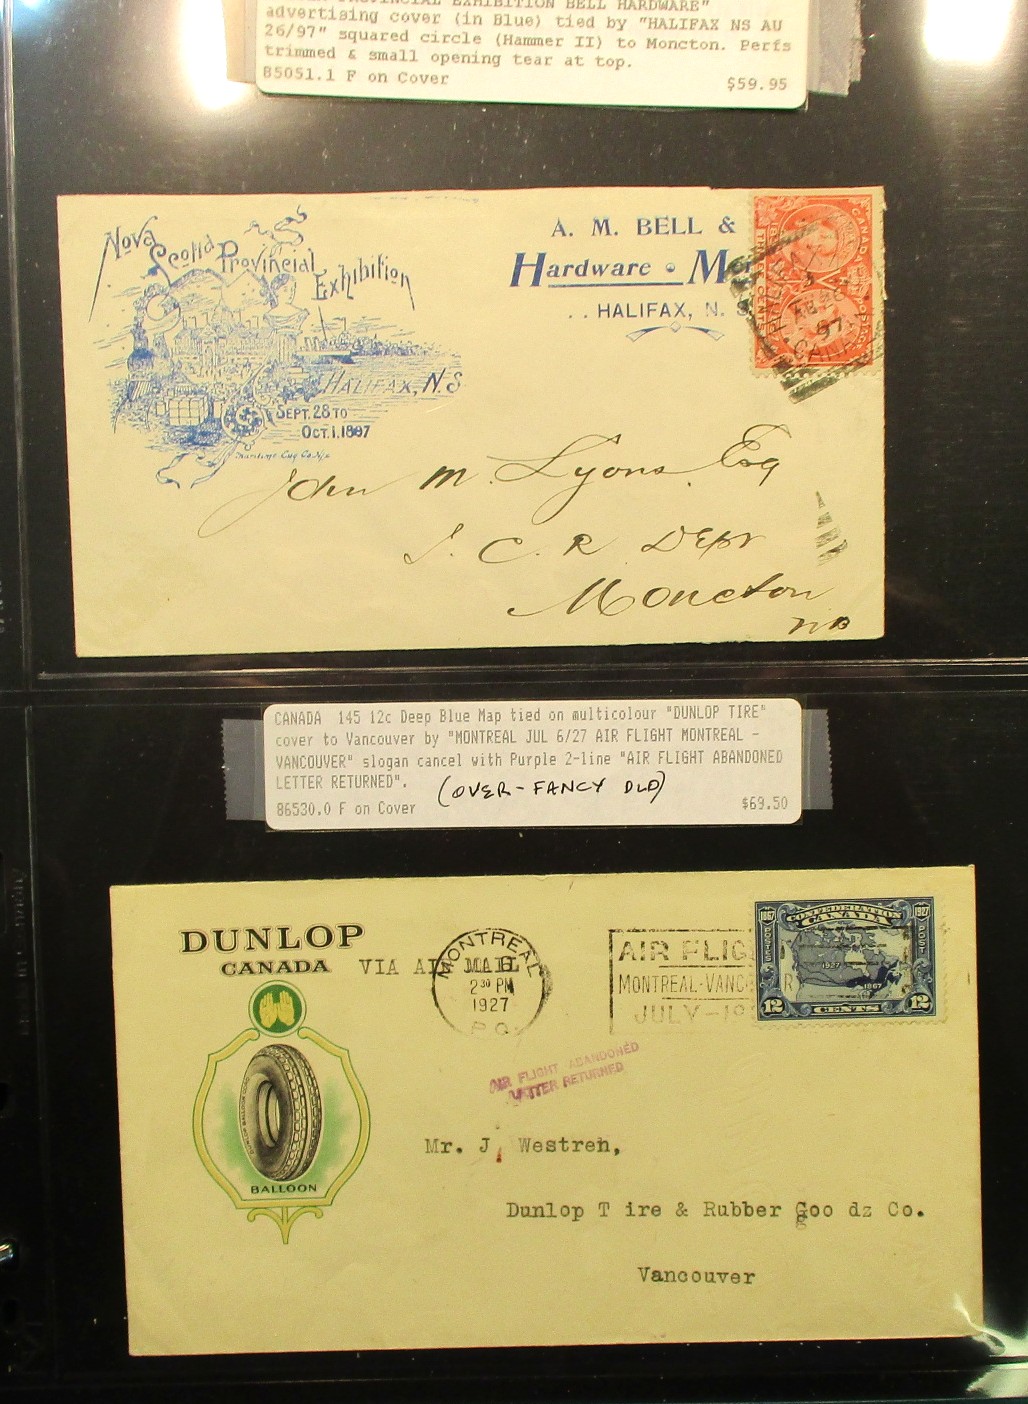 PROVINCIAL EXHIBITION BELL HARDWARE"
advertising cover (in Blue) tied by "HALIFAX NS AU
26/97" squared circle (Hammer II) to Moncton. Perfs
trimmed & small opening tear at top.
85051.1 F on Cover $59.95
Nova Scotia Provincial Exhibition
HALIFAX, N.S
SEPT. 28 TO
OCT. 1, 1897
A. M. BELL &
Hardware
HALIFAX, N. S
CANADA
THREE CENTS
97
CANADA
John M. Lyons Esq
I. C. R Dept
Moncton
NB
CANADA 145 12c Deep Blue Map tied on multicolour "DUNLOP TIRE"
cover to Vancouver by "MONTREAL JUL 6/27 AIR FLIGHT MONTREAL -
VANCOUVER" slogan cancel with Purple 2-line "AIR FLIGHT ABANDONED
LETTER RETURNED".
(OVER - FANCY DLO)
86530.0 F on Cover $69.50
DUNLOP
CANADA
VIA AIR MAIL
MONTREAL
2 30 PM
1927
P.Q.
AIR FLIG
MONTREAL-VANCO R
JULY-19
1867 CONFEDERATION 1927
CANADA
POSTES POST
1927
1867
12 CENTS 12
AIR FLIGHT ABANDONED
LETTER RETURNED
BALLOON
Mr. J, Westren,
Dunlop T ire & Rubber Goo dz Co.
Vancouver